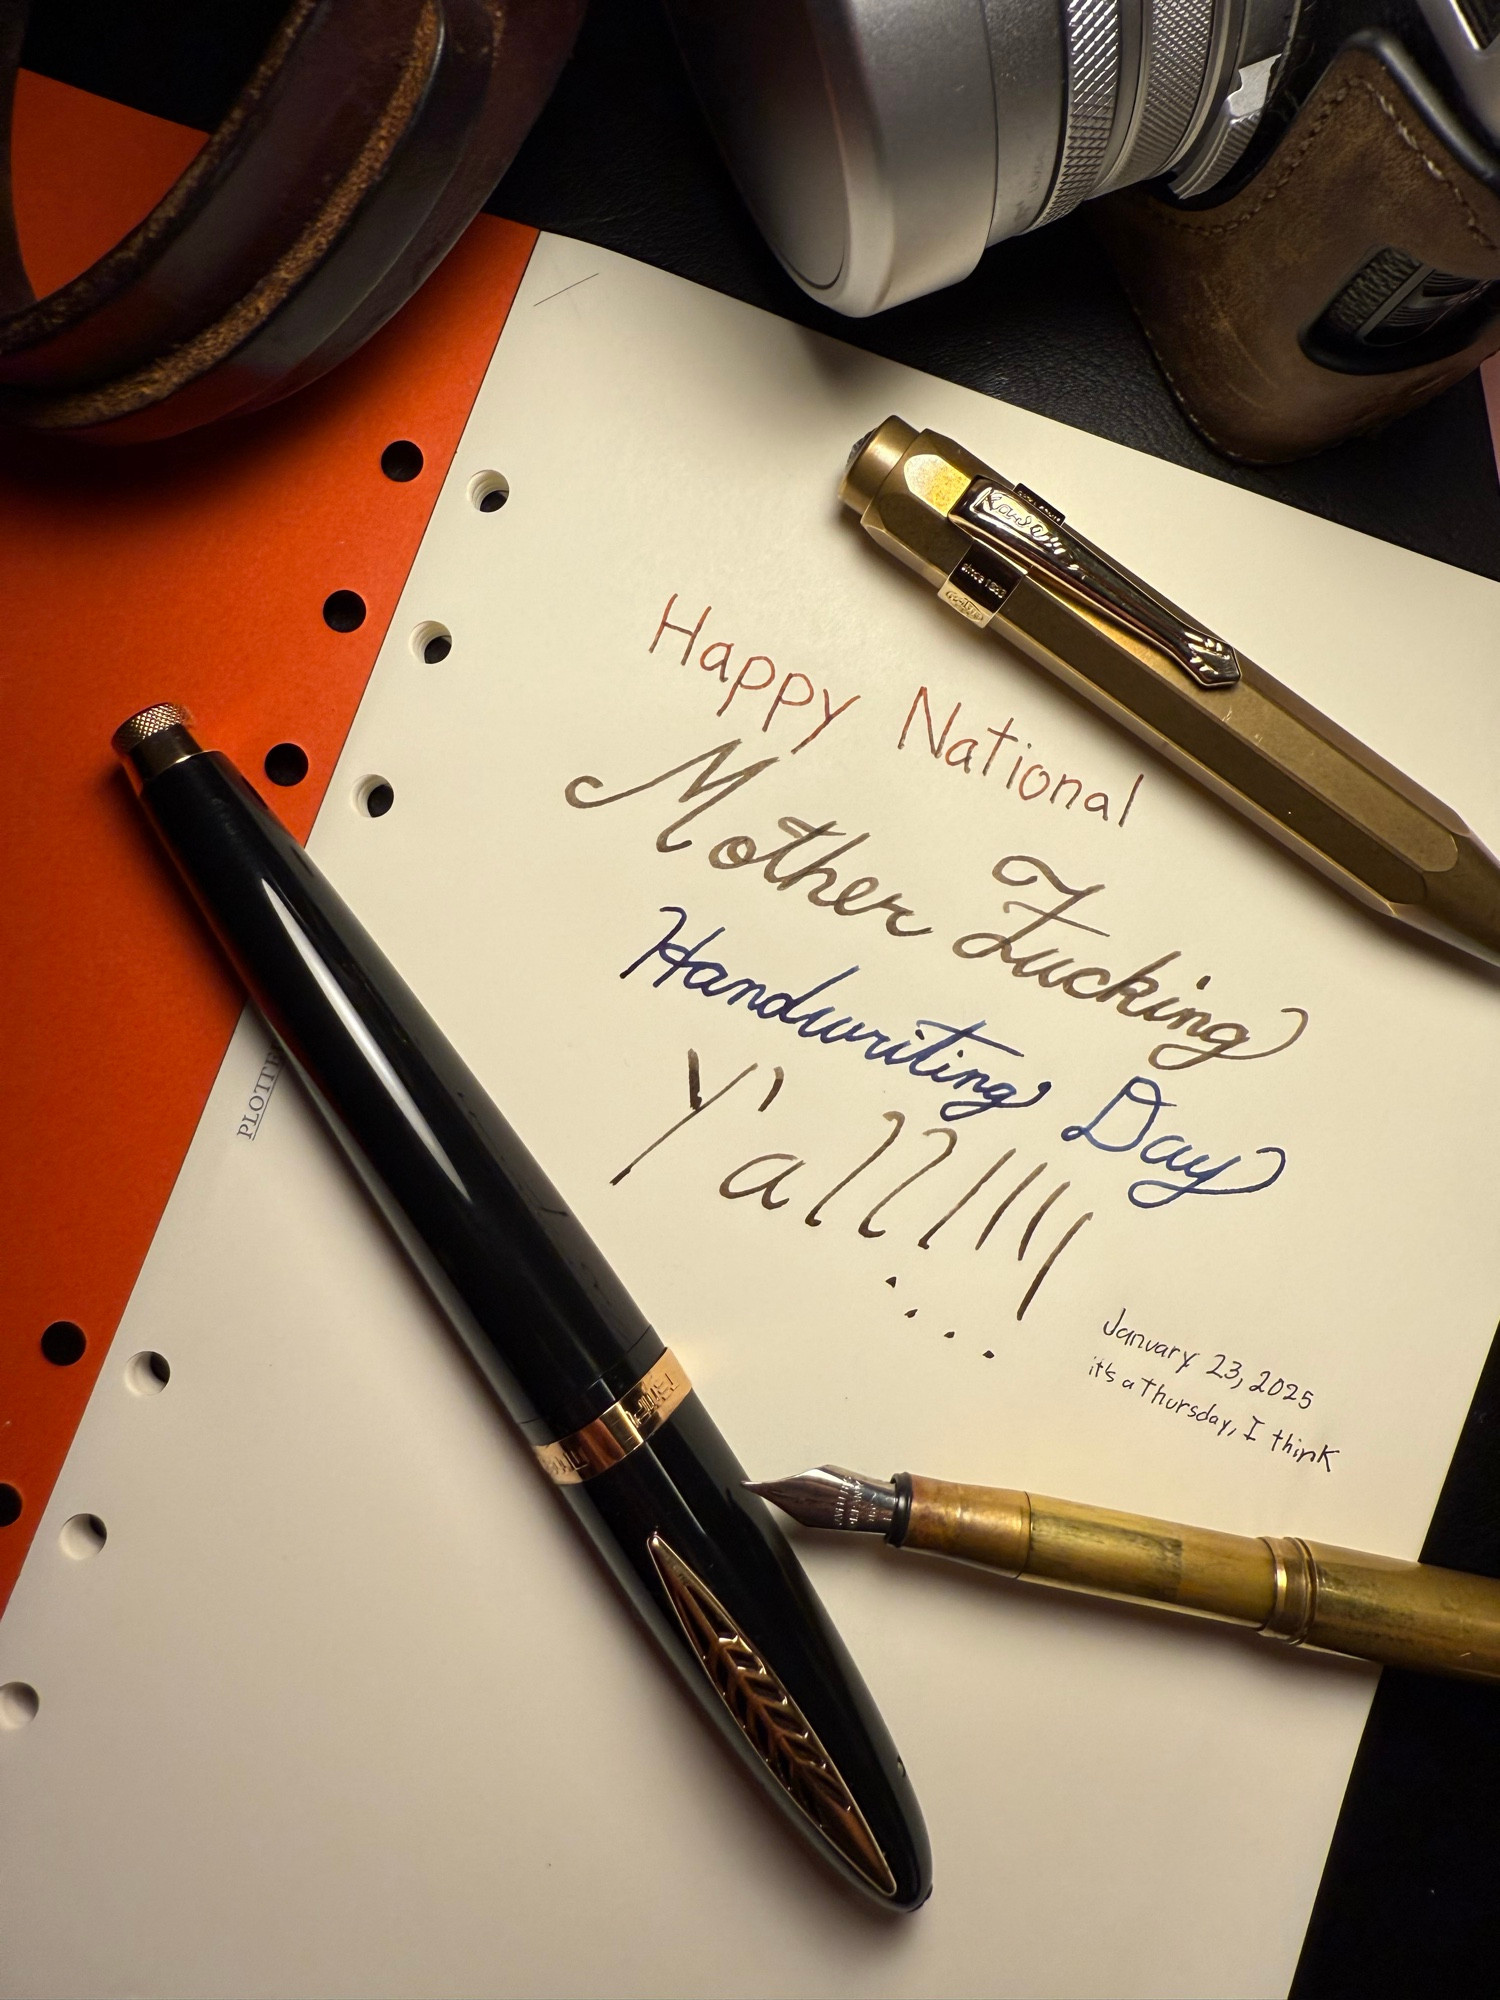 Happy National
Mother Fucking
Handwriting Day
Y'all!!!!
January 23, 2025
it's a Thursday, I think
Kaweco
since 1883